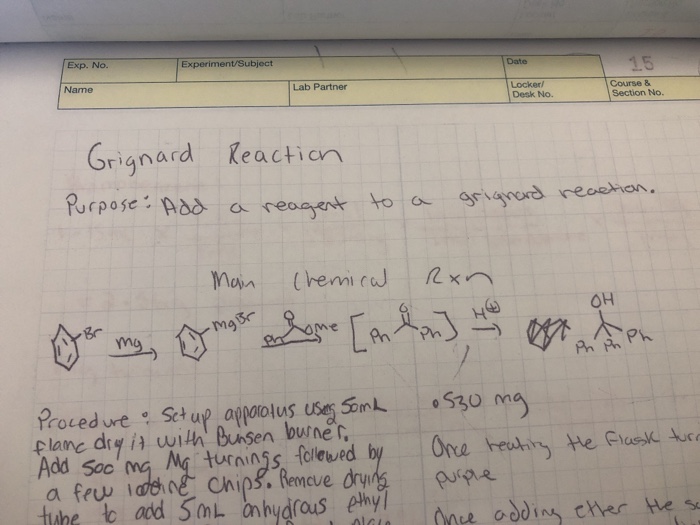 Exp. No. Experiment/Subject Date 15
Name Lab Partner Locker/ Desk No. Course & Section No.
Grignard Reaction
Purpose: Add a reagent to a grignard reaction.
Main Chemical Rxn
Br Mg MgBr O Ph OMe [ O Ph Ph ] H⊕ OH Ph Ph Ph
Procedure: Set up apparatus using 50mL
flame dry it with Bunsen burner.
Add 500 mg Mg turnings followed by
a few iodine chips. Remove drying
tube to add 5mL anhydrous ethyl
•530 mg
Once heating the flask
purple
Once adding ether the